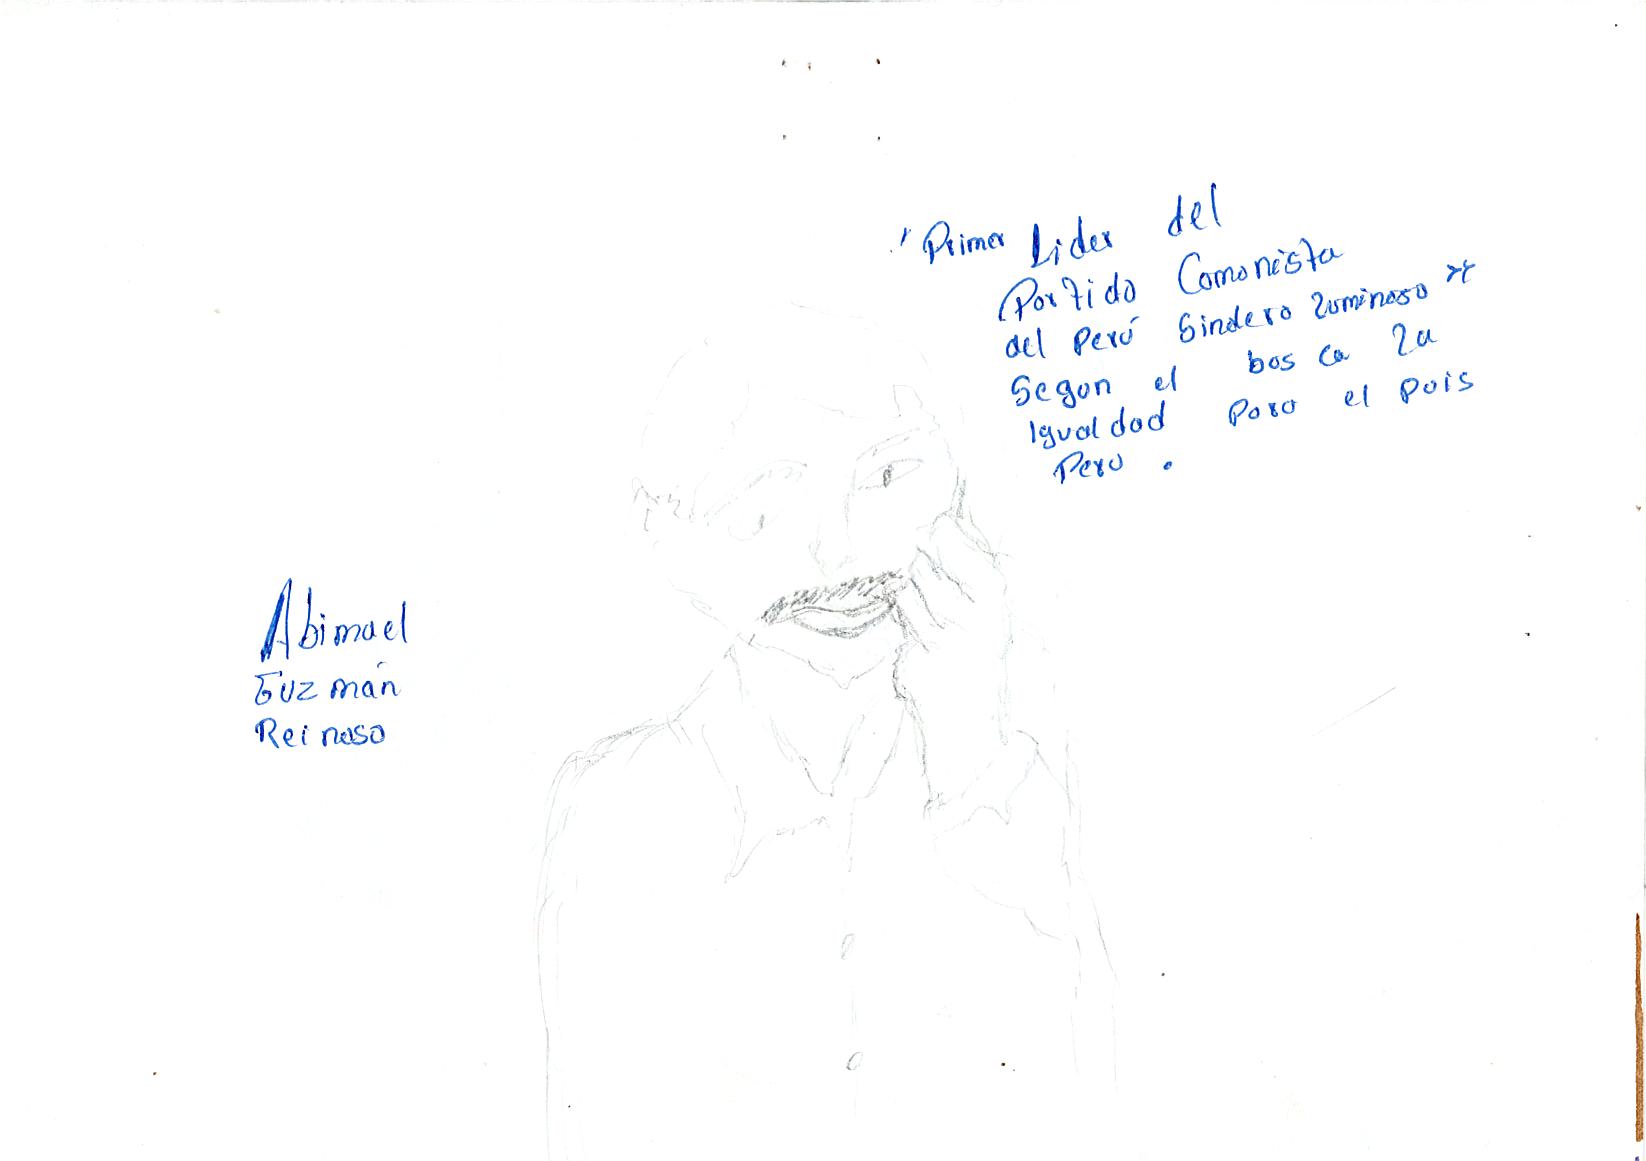 Abimael
Guzmán
Reinoso
"Primer Lider del
Partido Comonista
del Perú Sindero Luminoso"
Segon el bosca La
Igualdad Para el pais
Peru.